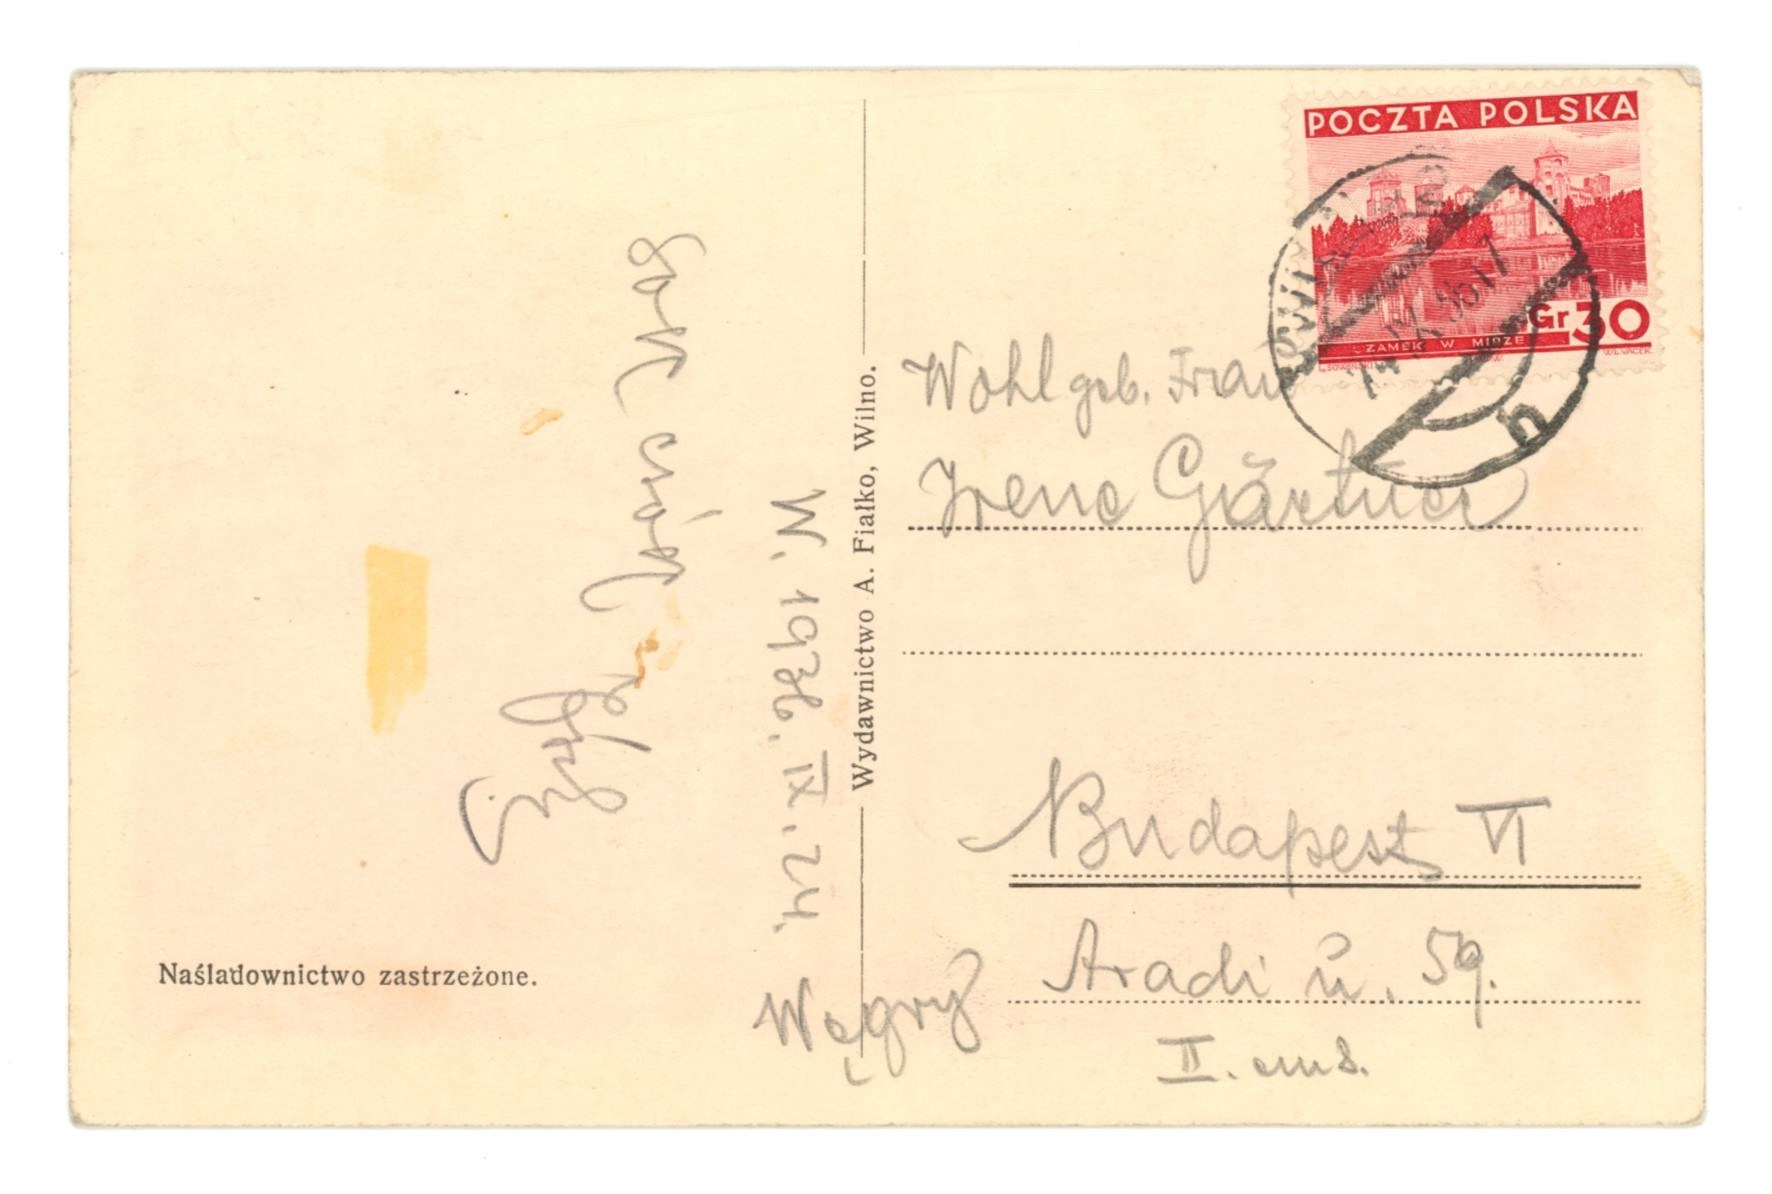 POCZTA POLSKA
Gr 30
ZAMEK W MIRZE
h
Wohlgeb. Frau
Irene Gärtner
Budapest VI
Aradi u. 59.
II. em 8.
Węgry
Wydawnictwo A. Fiałko, Wilno.
W. 1936. IX. 24.
Sok csók
Naśladownictwo zastrzeżone.